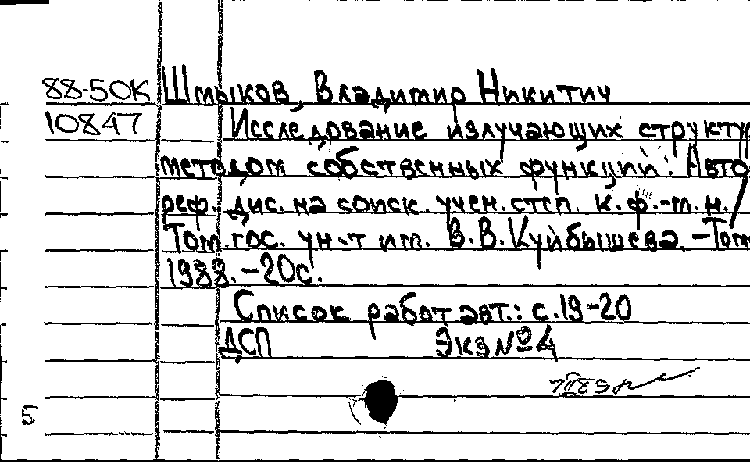 88-50К Штыков, Владимир Никитич
10847 Исследование излучающих структу
методом собственных функций: Авто
реф. дис. на соиск. учен. степ. к.ф.-т.н. /
Том. гос. ун-т им. В.В. Куйбышева. - Том
1988. - 20с.
Список работ авт.: с.19-20
ДСП Экз №4
5